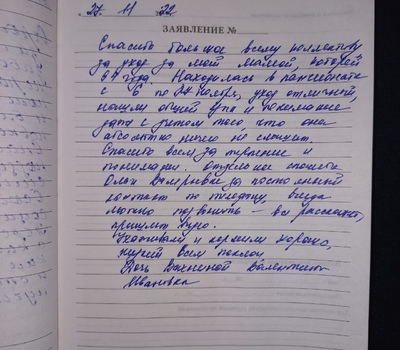 27. 11 22
ЗАЯВЛЕНИЕ №
Спасибо большое всему коллективу
за уход за моей мамой, которой
94 года. Находилась в пансионате
с 6 по 27 ноября, уход отличный,
нашли общий язык и понимание
учетом того, что она
абсолютно ничего не слышит.
Спасибо всем за терпение и
понимание. Отдельное спасибо
за постоянный
контакт по телефону, всегда
можно позвонить - все расскажут,
пришлют видео.
Ухаживали и кормили хорошо,
низкий всем поклон
Дочь Валентины
Ивановны